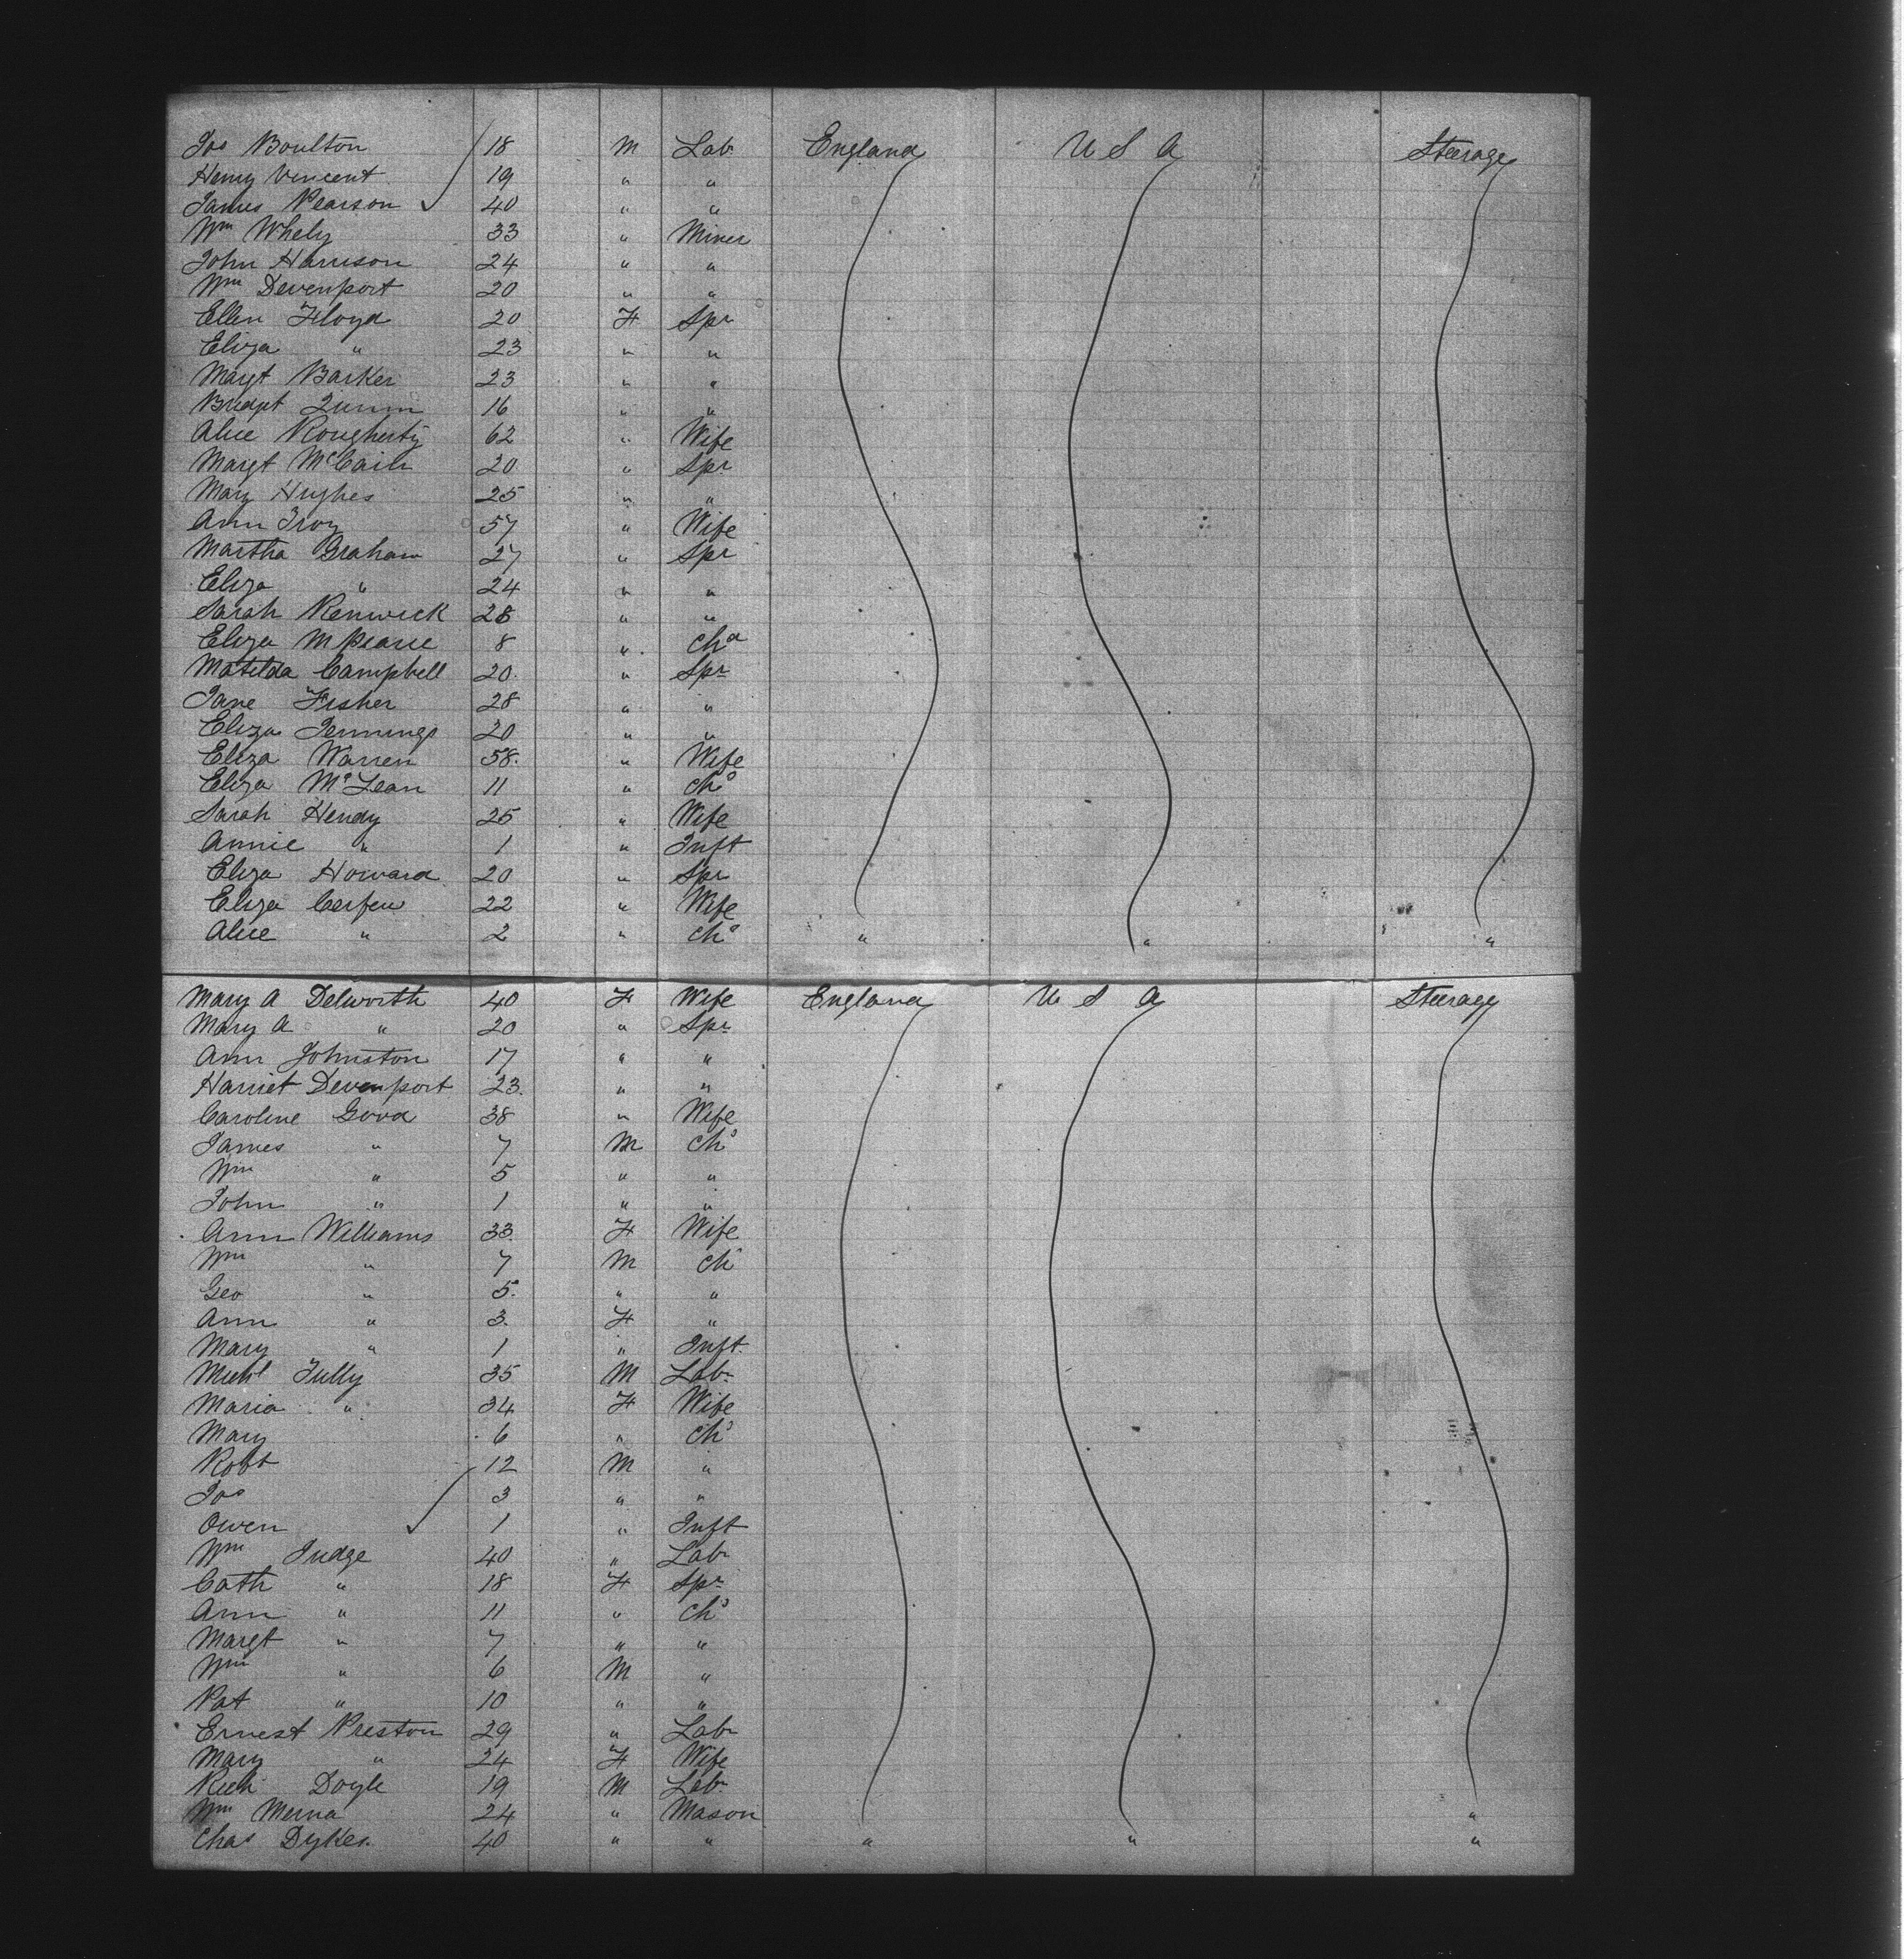 Jos Boulton 18 M Lab England U S A Steerage
Henry Vincent 19 " "
James Pearson 40 " "
Wm Whely 33 " Miner
John Harrison 24 " "
Wm Devenport 20 " "
Ellen Floyd 20 F Spr
Eliza " 23 " "
Margt Barker 23 " "
Bridgt Quinn 16 " "
Alice Rougherty 62 " Wife
Margt 20 " Spr
Mary Hughes 25 " "
Ann Troy 57 " Wife
Martha Graham 27 " Spr
Eliza " 24 " "
Sarah Renwick 28 " "
Eliza M Pearce 8 " Chd
Matilda Campbell 20 " Spr
Jane Fisher 28 " "
Eliza Jennings 20 " "
Eliza Warren 58 " Wife
Eliza McLean 11 " Chd
Sarah Hendy 25 " Wife
Annie " 1 " Inft
Eliza Howard 20 " Spr
Eliza 22 " Wife
Alice " 2 " Chd " " "
Mary A Delworth 40 F Wife England U S A Steerage
Mary A " 20 " Spr
Ann Johnston 17 " "
Harriet Devenport 23 " "
Caroline Good 38 " Wife
James " 7 M Chd
Wm " 5 " "
John " 1 " "
Ann Williams 33 F Wife
Wm " 7 M Ch
Geo " 5 " "
Ann " 3 F "
Mary " 1 " Inft
Michl Tully 35 M Lab
Maria " 34 F Wife
Mary 6 " Chd
Robt 12 M "
Jos 3 " "
Owen 1 " Inft
Wm Judge 40 " Lab
Cath " 18 F Spr
Ann " 11 " Chd
Margt " 7 " "
Wm " 6 M "
Pat " 10 " "
Ernest Preston 29 " Lab
Mary " 24 F Wife
Rich Doyle 19 M Lab
Wm Merna 24 " Mason "
Chas Dykes 40 " " " " "